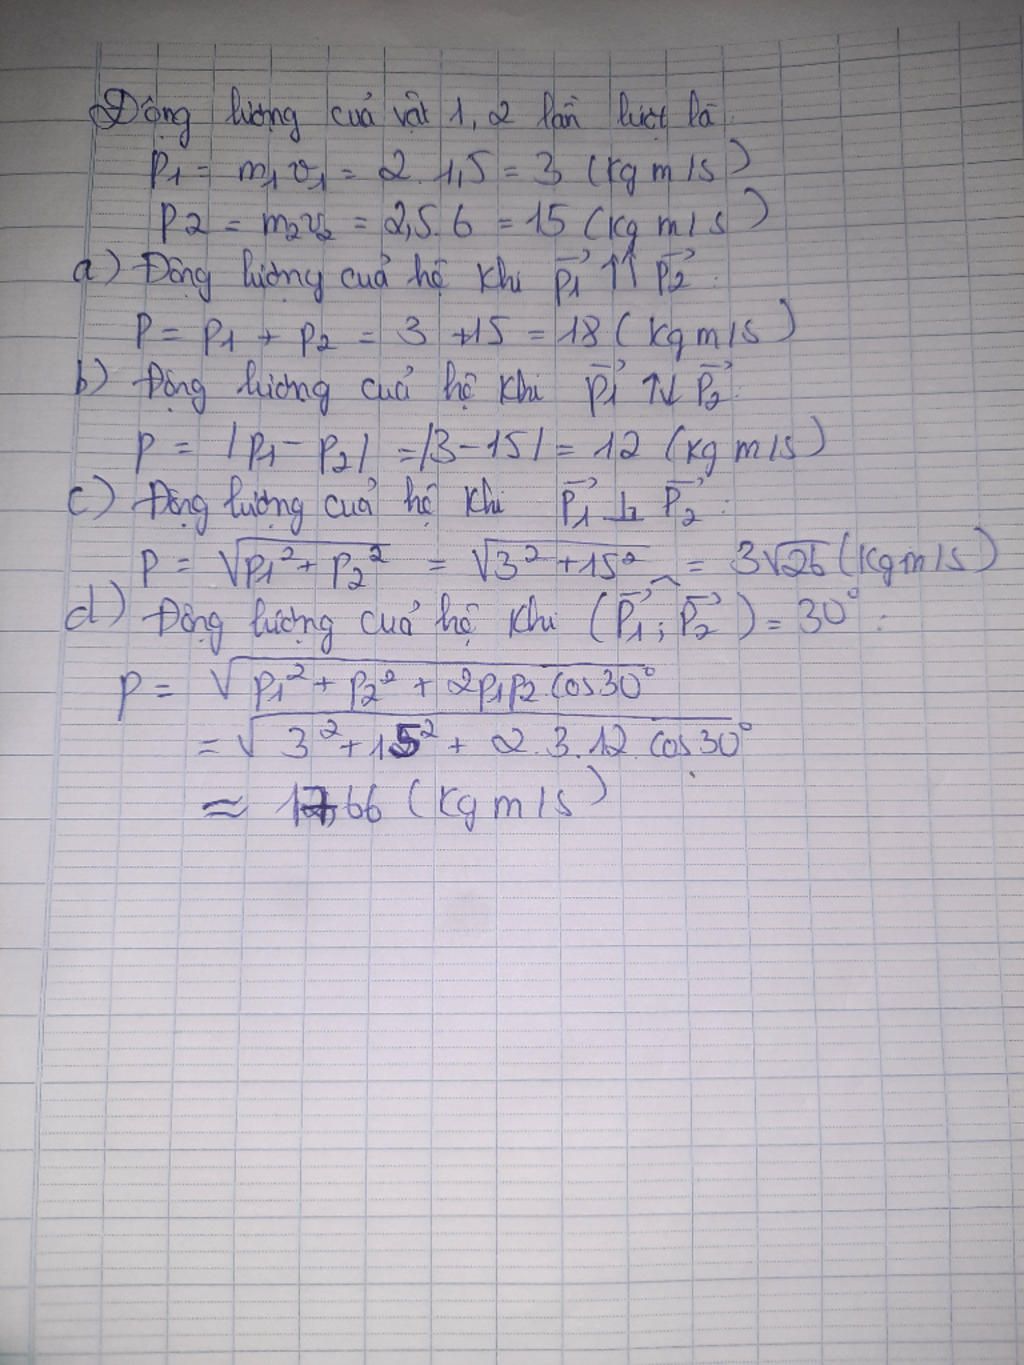 Động lượng của vật 1, 2 lần lượt là:
p₁ = m₁v₁ = 2.1,5 = 3 (kg m/s)
p2 = m₂v₂ = 2,5.6 = 15 (kg m/s)
a) Động lượng của hệ khi p₁⃗ ↑↑ p₂⃗ :
p = p₁ + p₂ = 3 + 15 = 18 (kg m/s)
b) Động lượng của hệ khi p₁⃗ ↑↓ p₂⃗ :
p = |p₁ - p₂| = |3 - 15| = 12 (kg m/s)
c) Động lượng của hệ khi p₁⃗ ⊥ p₂⃗ :
p = √(p₁² + p₂²) = √(3² + 15²) = 3√26 (kg m/s)
d) Động lượng của hệ khi (p₁⃗ ; p₂⃗) = 30° :
p = √(p₁² + p₂² + 2p₁p₂ cos30°)
= √(3² + 15² + 2.3.12.cos30°)
≈ 17,66 (kg m/s)